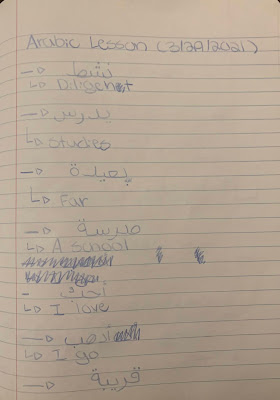 Arabic Lesson (3/29/2021)
→ نشيط
↳ Diligent
→ يدرس
↳ studies
→ بعيدة
↳ Far
→ مدرسة
↳ A school
- أحب
↳ I love
→ أذهب
↳ I go
→ قريبة